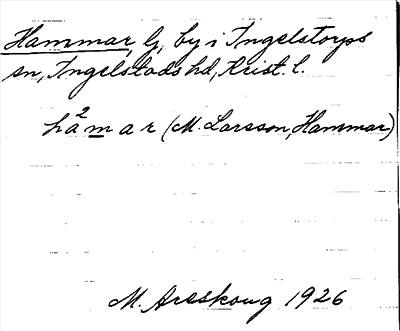 Hammar, by i Ingelstorps
sn, Ingelstads hd, Krist. l.
hа²mar (M. Larsson, Hammar)
M. Areskoug 1926